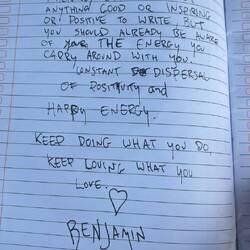 ANYTHING GOOD OR INSPIRING
OR POSTIVE TO WRITE, BUT
YOU SHOULD ALREADY BE AWARE
OF THE ENERGY YOU
CARRY AROUND WITH YOU.
CONSTANT DISPERSAL
OF POSITIVITY and
HAPPY ENERGY.
KEEP DOING WHAT YOU DO,
KEEP LOVING WHAT YOU
LOVE.
BENJAMIN